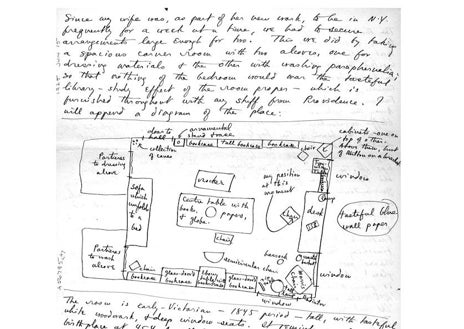 Since my wife was, as part of her new work, to be in N.Y.
frequently for a week at a time, we had to secure
arrangements large enough for two. This we did by taking
a spacious corner room with two alcoves, one for
dressing materials & the other with washing paraphernalia;
so that nothing of the bedroom would mar the tasteful
library-study effect of the room proper - which is
furnished throughout with my stuff from Providence. I
will append a diagram of the place:
door to hall
ornamental
stand
collection of canes
bookcase
Tall bookcase
bookcase
chair
cabinets - one on
top of a
Above them, bust
of Milton on a bracket
Portieres
to dressing
alcove
Sofa
which
unfolds
to
bed
rocker
Centre table with
books, papers,
& globe.
chair
my position
at this
moment
chair
desk
window
tasteful blue
wall paper
Portieres
to wash
alcove
semicircular chair
hassock
window
chair
glass-door
bookcase
glass-door
bookcase
bookcase
window
The room is early-Victorian - 1845 period - tall, with tasteful
white woodwork, & deep window seats.